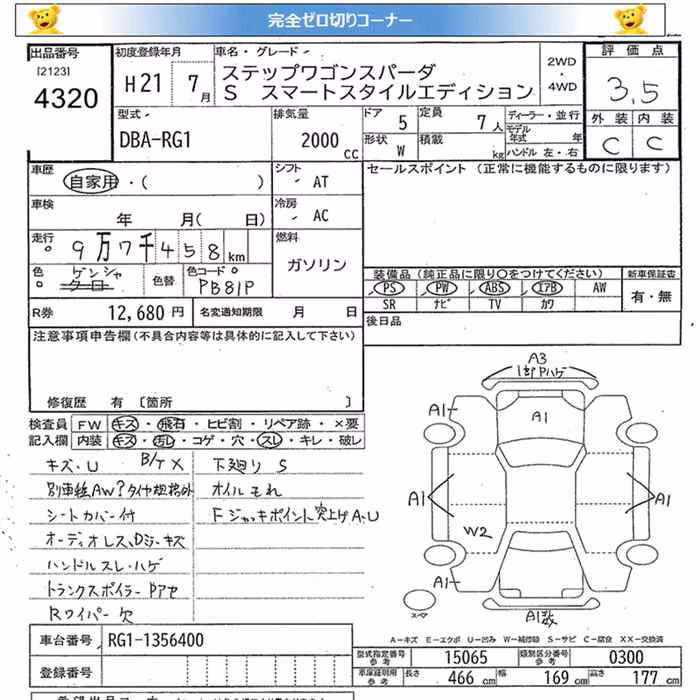 完全ゼロ切りコーナー
出品番号 初度登録年月 車名・グレード 2WD・4WD 評価点
[2123] 4320 H21 7月 ステップワゴンスパーダ
S スマートスタイルエディション 3.5
型式 排気量 ドア 5 定員 7人 ディーラー・並行 外装 内装
DBA-RG1 2000cc 形状 W 積載 kg モデル年式 年 C C
ハンドル 左・右
車歴 自家用・( ) シフト AT セールスポイント (正常に機能するものに限ります)
車検 年 月( 日) 冷房 AC
走行 9万7千458km 燃料 ガソリン
色 ゲンシャ クロ 色替 色コード PB81P 装備品(純正品に限り○をつけてください) 新車保証書
PS PW ABS エアB AW 有・無
SR ナビ TV カワ
R券 12,680円 名変通知期限 月 日 後日品
注意事項申告欄(不具合内容等は具体的に記入して下さい)
修復歴 有 〔箇所 〕
検査員記入欄 FW キズ・飛石・ヒビ割・リペア跡・×要
内装 キズ・汚レ・コゲ・穴・スレ・キレ・破レ
キズ・U B/T X 下廻り S
別車純AW?タイヤ規格外 オイルもれ
シートカバー付 Fジャッキポイント突上げA、U
オーディオレス、Dミラーキズ
ハンドルスレ・ハゲ
トランクスポイラーPアセ
Rワイパー欠
A3
1部Pハゲ
A1
A1
A1
A1
W2
A1
A1数
スペア
A-キズ E-エクボ U-凹み W-補修跡 S-サビ C-腐食 XX-交換済
車台番号 RG1-1356400
登録番号
型式指定番号 参考 15065 類別区分番号 参考 0300
車庫証明用 参考 長さ 466cm 幅 169cm 高さ 177cm